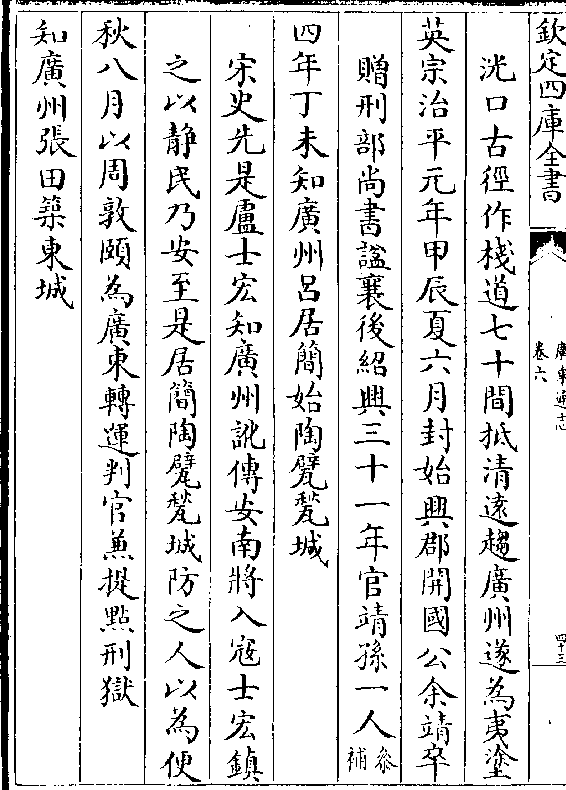 欽定四庫全書
廣東通志
卷六
四十三
洸口古徑作棧道七十間抵清遠趨廣州遂為夷塗
英宗治平元年甲辰夏六月封始興郡開國公余靖卒
贈刑部尚書謚襄後紹興三十一年官靖孫一人
參
補
四年丁未知廣州呂居簡始陶甓甃城
宋史先是盧士宏知廣州訛傳安南將入寇士宏鎮
之以靜民乃安至是居簡陶甓甃城防之人以為便
秋八月以周敦頤為廣東轉運判官兼提點刑獄
知廣州張田築東城